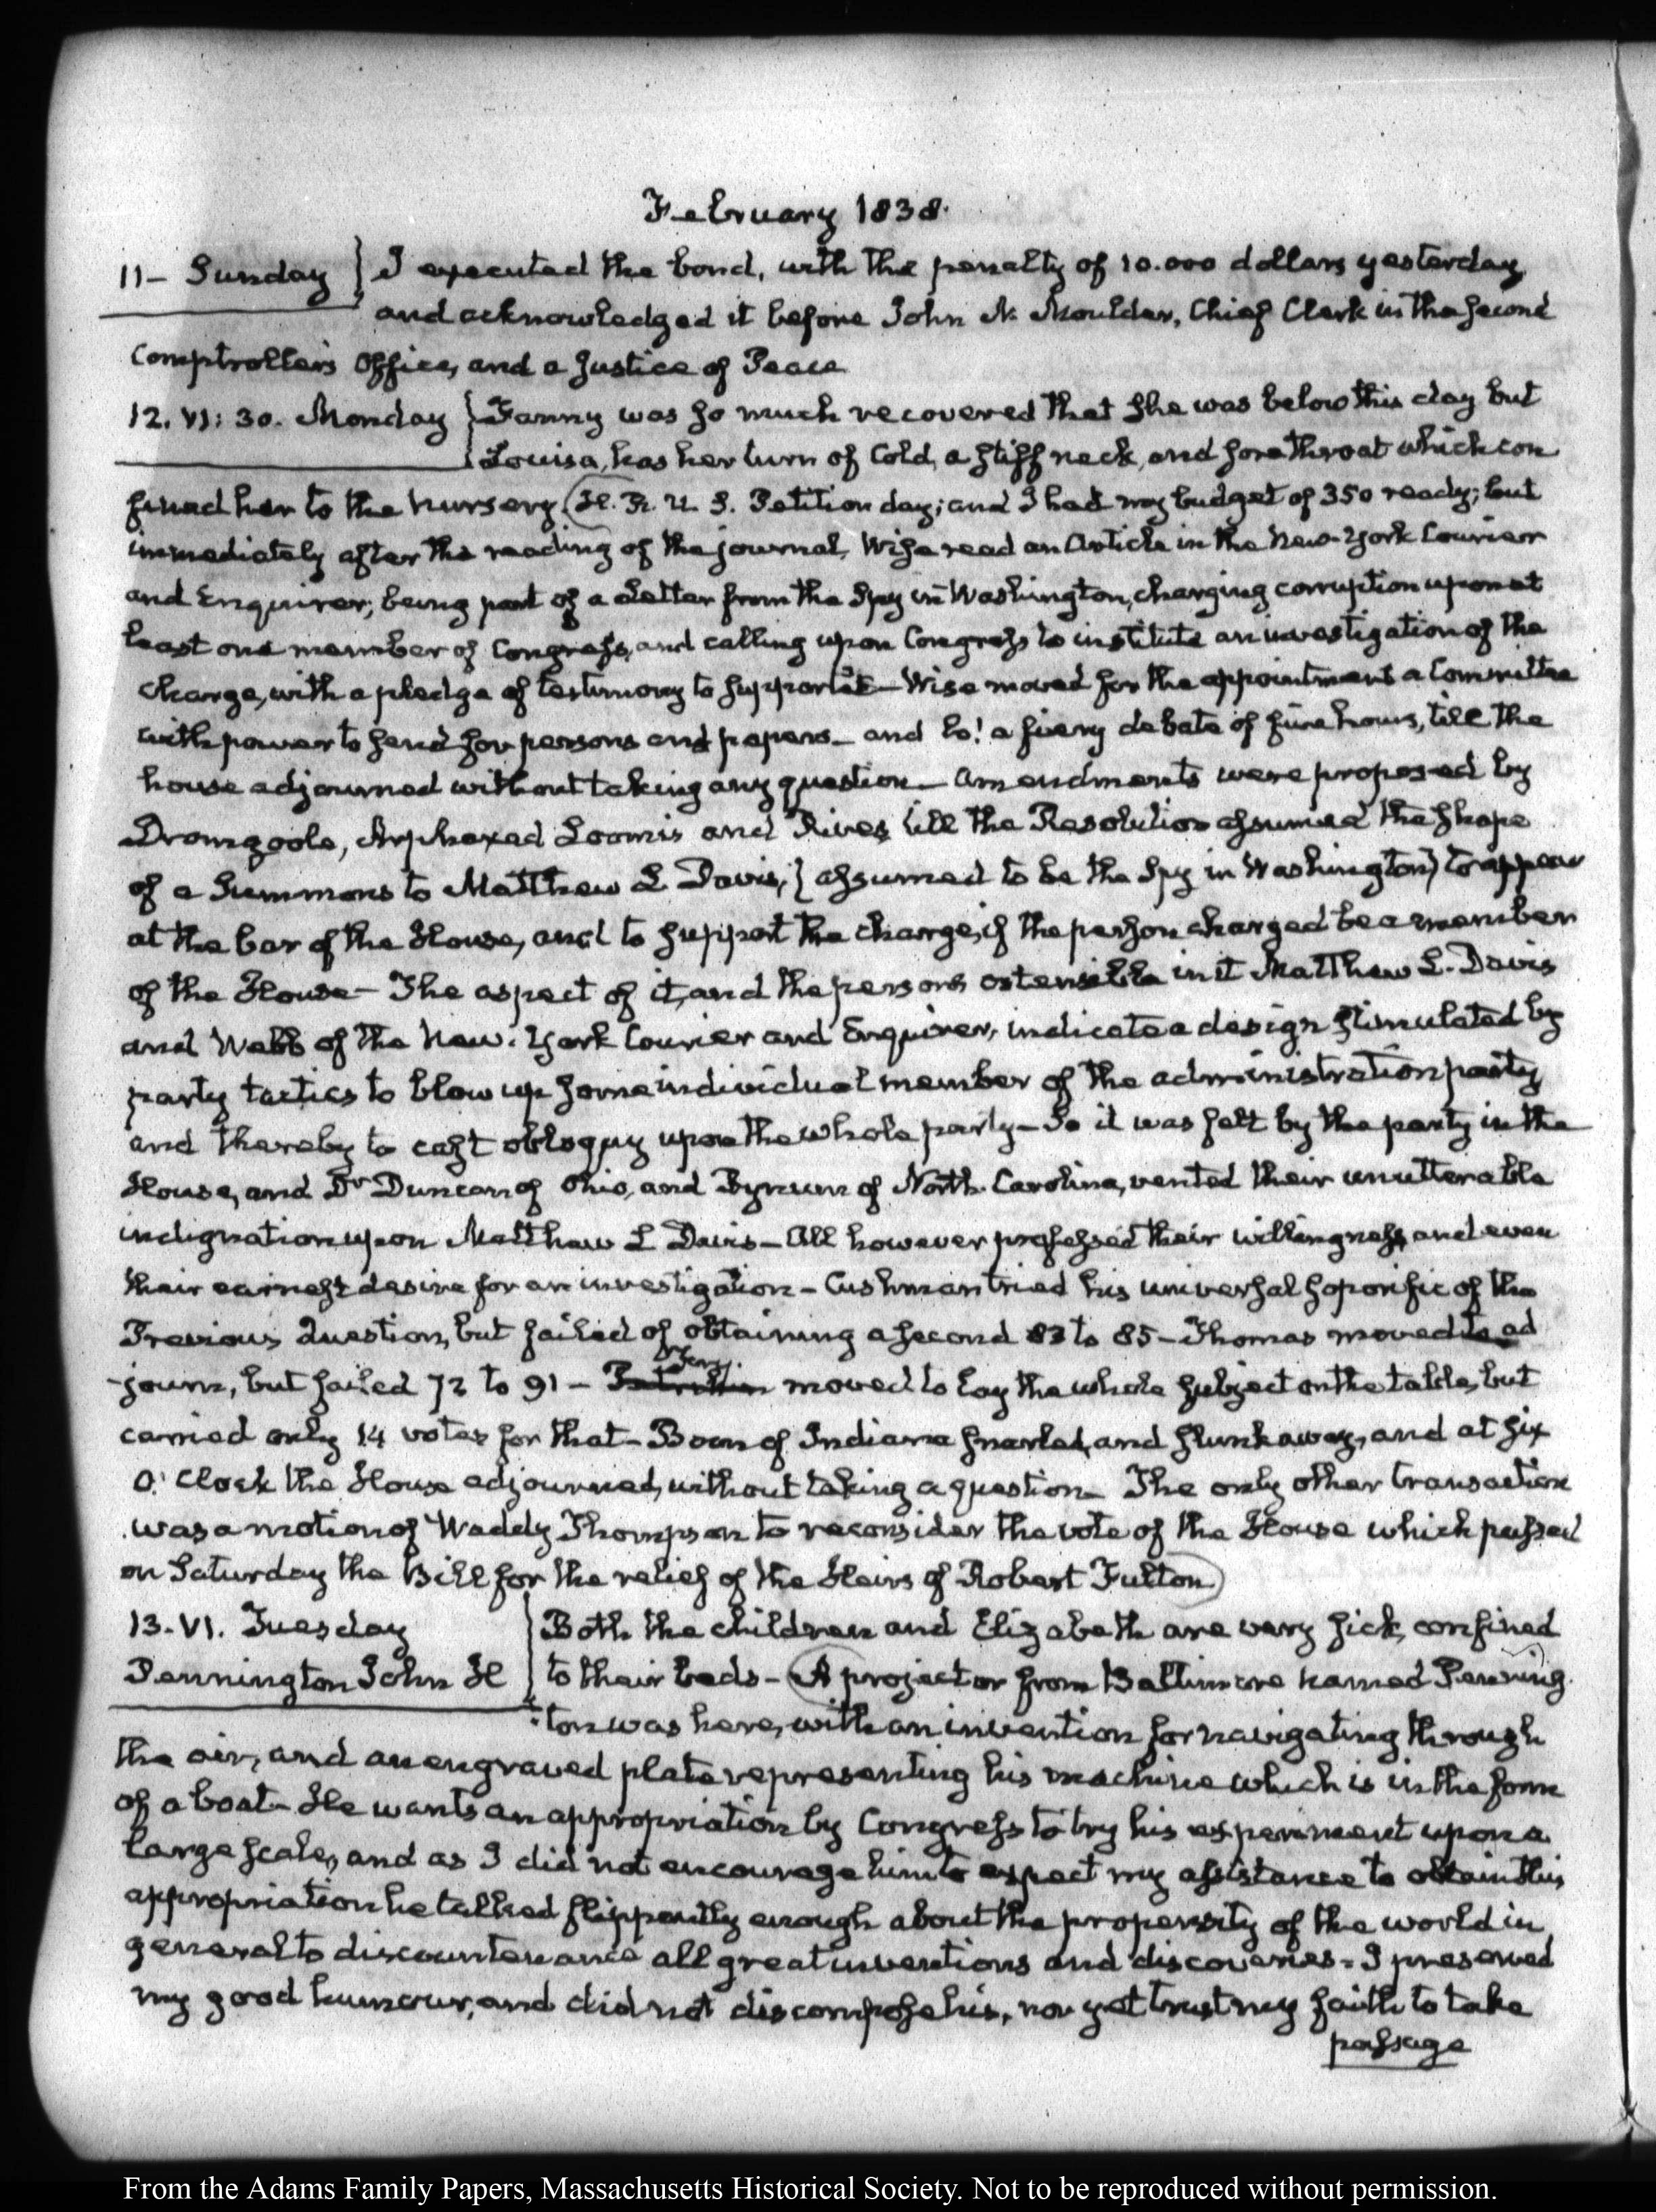 February 1838.
11 – Sunday } I executed the bond, with the penalty of 10.000 dollars yesterday,
and acknowledged it before John N. Moulder, Chief Clerk in the Second
Comptroller's Office, and a Justice of Peace
12. VI: 30. Monday } Fanny was so much recovered that she was below this day but
Louisa, has her turn of Cold, a stiff neck, and sore throat which con
fined her to the nursery. (H. R. U. S. Petition day; and I had my budget of 350 ready; but
immediately after the reading of the journal, Wise read an Article in the New-York Courier
and Enquirer; being part of a Letter from the Spy in Washington, charging corruption upon at
least one member of Congress, and calling upon Congress to institute an investigation of the
charge, with a pledge of testimony to support it – Wise moved for the appointment a Committee
with power to send for persons and papers – and lo! a fiery debate of five hours, till the
house adjourned without taking any question – Amendments were proposed by
Dromgoole, Arphaxed Loomis and Rives till the Resolution assumed the shape
of a Summons to Matthew L Davis, (assumed to be the Spy in Washington) to appear
at the bar of the House, and to support the charge, if the person charged be a member
of the House – The aspect of it, and the persons ostensible in it Matthew L. Davis
and Webb of the New-York Courier and Enquirer, indicate a design stimulated by
party tactics to blow up some individual member of the administration party
and thereby to cast obloquy upon the whole party – So it was felt by the party in the
House, and Dr Duncan of Ohio, and Bynum of North-Carolina, vented their unutterable
indignation upon Matthew L Davis – All however professed their willingness, and even
their earnest desire for an investigation – Cushman tried his universal soporific of the
Previous Question, but failed of obtaining a second 83 to 85 – Thomas moved to ad
-journ, but failed 72 to 91 – moved to lay the whole subject on the table, but
carried only 14 votes for that – Boon of Indiana snarled, and slunk away, and at six
O'Clock the House adjourned, without taking a question – The only other transaction
was a motion of Waddy Thompson to reconsider the vote of the House which passed
on Saturday the Bill for the relief of the Heirs of Robert Fulton)
13. VI. Tuesday } Both the children and Elizabeth are very sick, confined
Pennington John H } to their beds – (A projector from Baltimore named Penning
-ton was here, with an invention for navigating through
the air, and an engraved plate representing his machine which is in the form
of a boat – He wants an appropriation by Congress to try his experiment upon a
large scale, and as I did not encourage him to expect my assistance to obtain this
appropriation he talked flippantly enough about the propensity of the world in
general to discountenance all great inventions and discoveries – I preserved
my good humour, and did not discompose his, nor yet trust my faith to take
passage
From the Adams Family Papers, Massachusetts Historical Society. Not to be reproduced without permission.